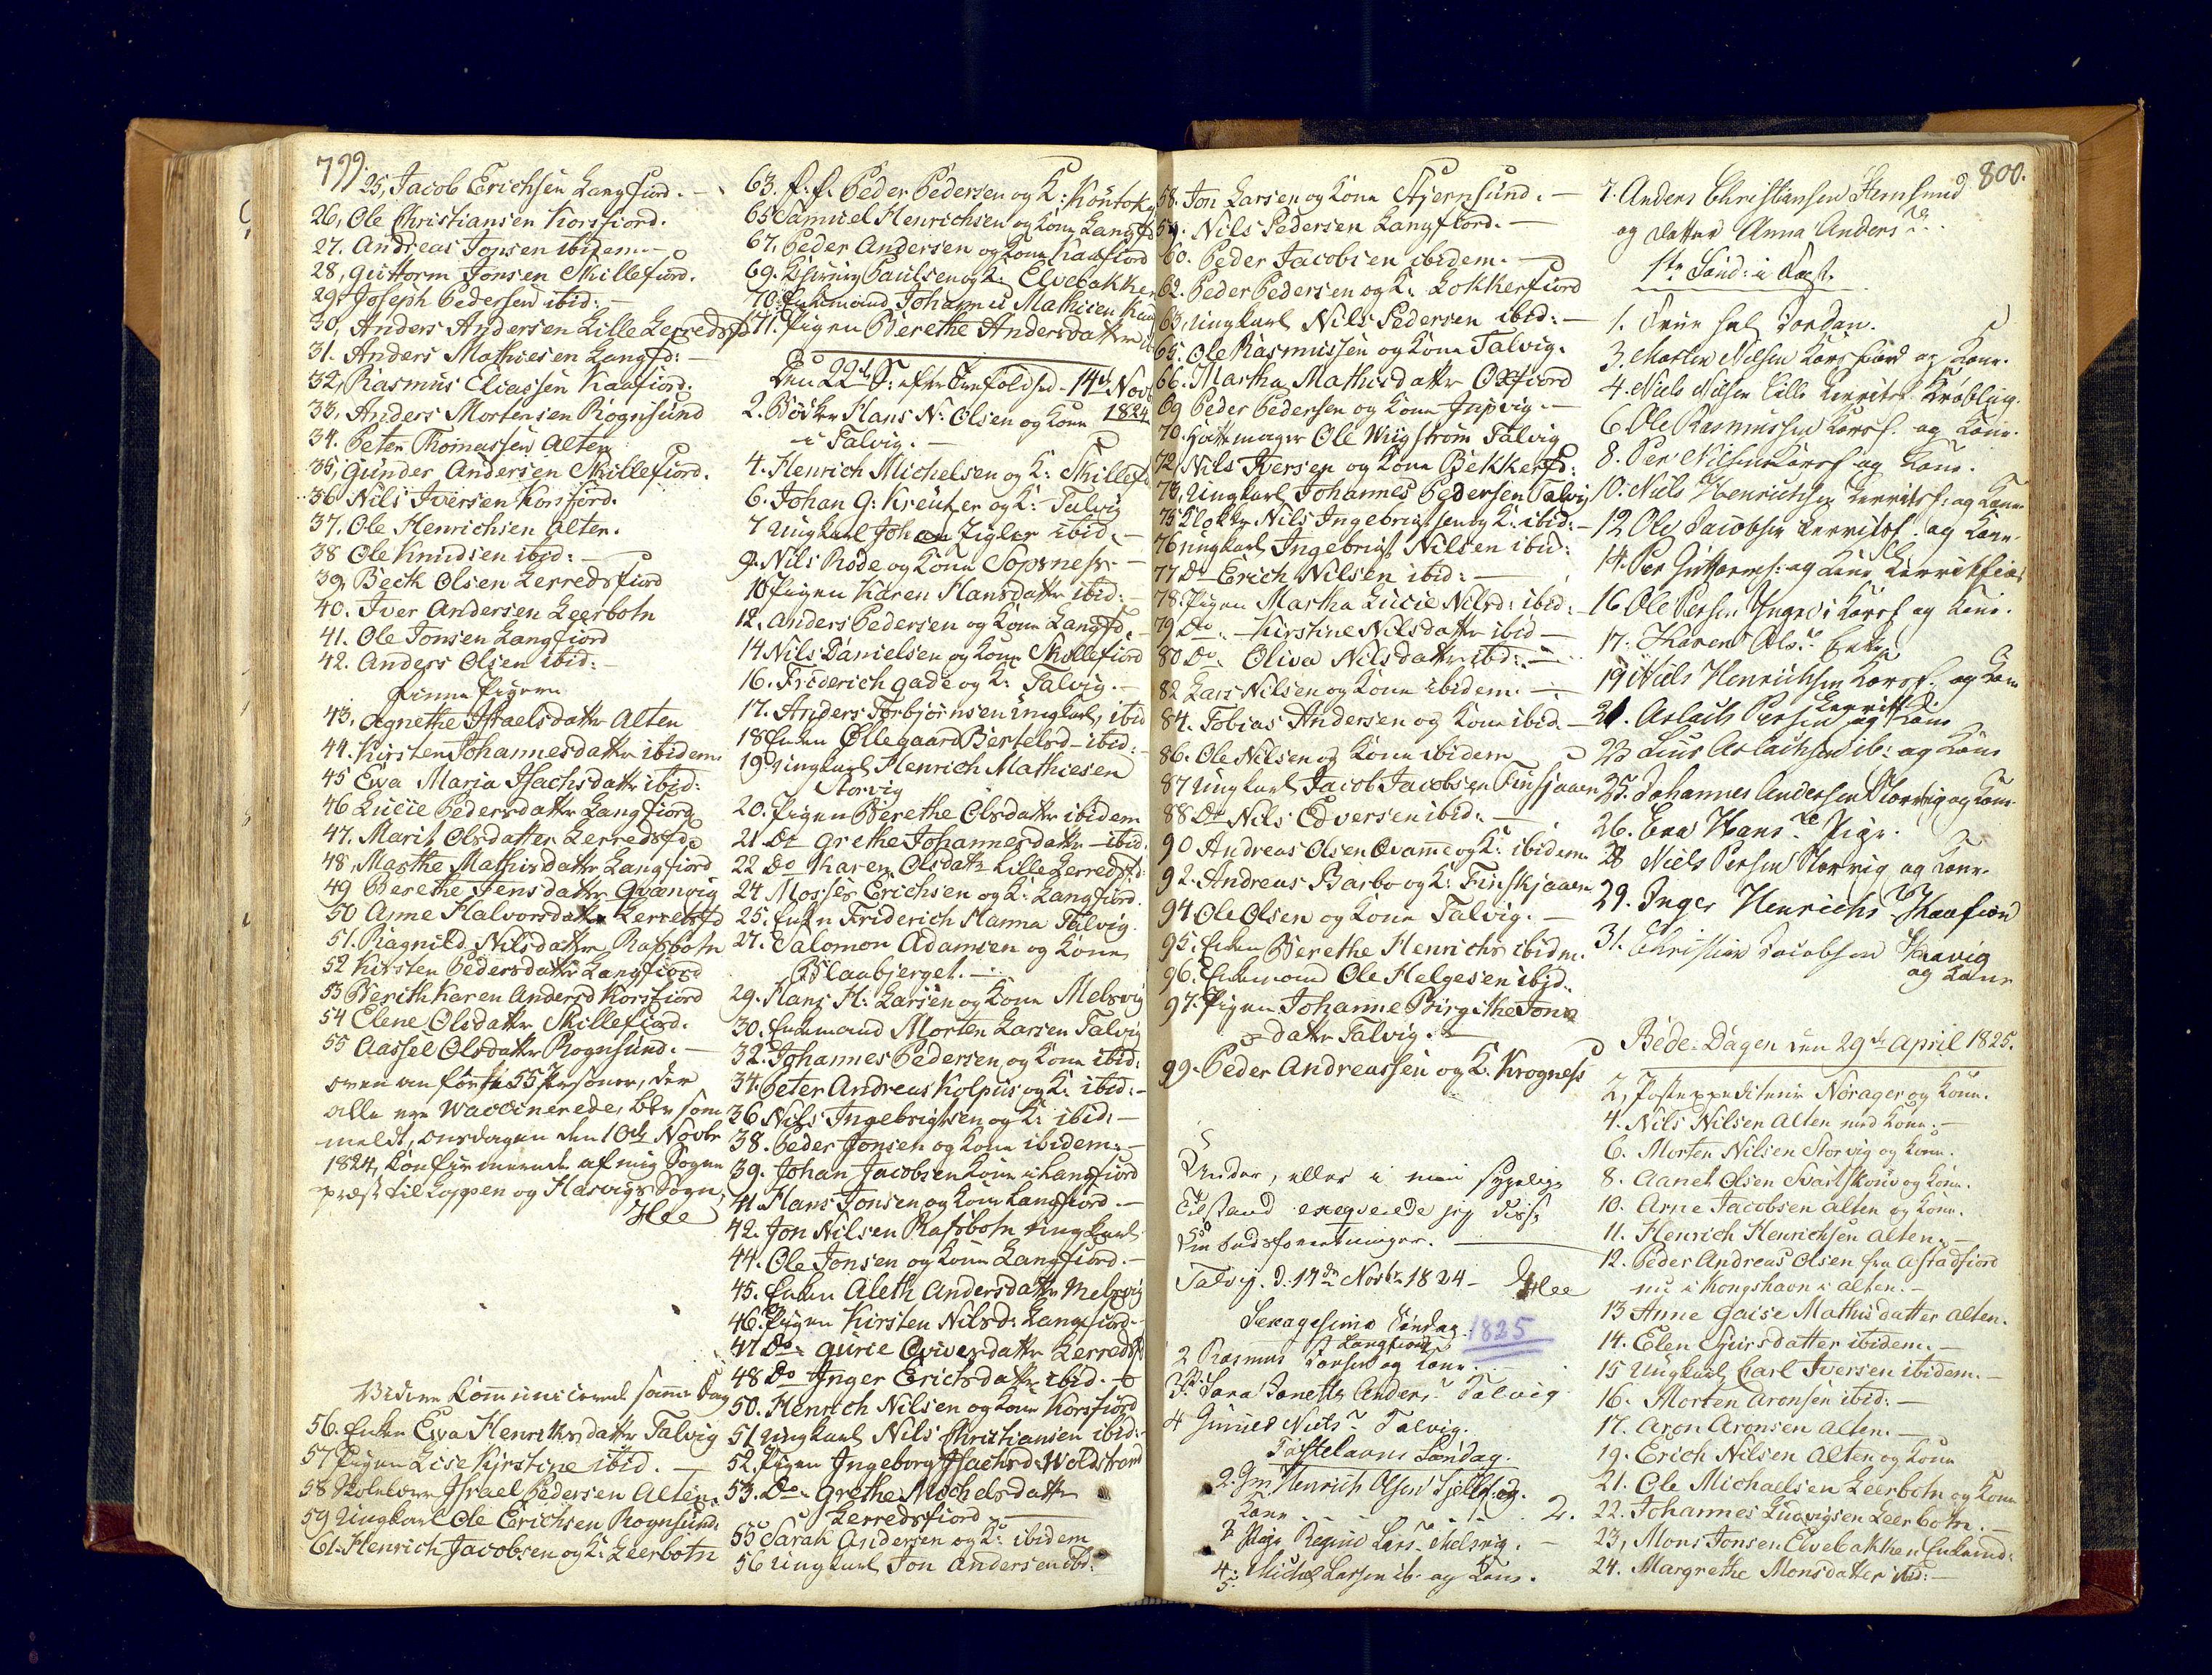 799.
25, Jacob Erichsen Langfiord. –
26, Ole Christiansen Korsfiord.
27. Andreas Jonsen ibidem. –
28, Guttorm Jonsen Skillefiord.
29, Joseph Pedersen ibid: –
30, Anders Andersen Lille Lerredsfd
31. Anders Mathiesen Langfd: –
32, Rasmus Eliassen Kaafiord.
33, Anders Mortensen Rognsund
34. Peter Thomassen Alten
35, Gunder Andersen Skillefiord.
36 Nils Iversen Korsfiord.
37. Ole Henrichsen Alten.
38 Ole Knudsen ibid: –
39, Beck Olsen Lerredsfiord
40. Iver Andersen Leerbotn
41. Ole Jonsen Langfiord
42. Anders Olsen ibid: –
Finne Pigerne
43, Agnethe Israelsdatter Alten
44. Kirsten Johannesdatter ibidem
45 Ewa Maria Isachsdatter ibid:
46 Lucie Pedersdatter Langfiord
47. Marit Olsdatter Lerredsfd
48, Marthe Mathisdatter Langfiord
49 Berethe Jensdatter Qvænvig
50 Anne Halvorsdatter Lerredsfd
51. Ragnild Nilsdatter Rafsbotn
52 Kirsten Pedersdatter Langfiord
53 Berith Karen Andersd Korsfiord
54 Elene Olsdatter Skillefiord.
55 Aassel Olsdatter Rognsund. –
oven anførte 55 Personer, der
alle ere Waccinerede, blev som
meldt, onsdagen den 10de Novbr
1824, Konfirmerede af mig Sogne
præst til Loppen og Hasvigs Sogn,
Hee
Videre Kommunicerede samme Dag
56. Enken Ewa Henrikesdatter Talvig
57 Pigen Lise Kirstine ibid. –
58 Skolelærer Israel Pedersen Alten
59 Ungkarl Ole Erichsen Rognsund.
61. Henrich Jacobsen og K: Leerbotn
63. Peder Pedersen og K: Koutok
65 Samuel Henrichsen og Kone Langfd
67. Peder Andersen og Kone Kaafiord
69. Paulsen og K: Elvebakken
70. Enkemand Johannes Mathisen
71. Pigen Berethe Andersdatter
Den 22de S: efter Trefoldhed – 14de Novb
1824
2. Hans N: Olsen og Kone
i Talvig. –
4. Henrich Michelsen og K: Skillefd
6. Johan G: Kreutzer og K: Talvig
7 Ungkarl Johan Zigler ibid. –
9. Nils Rode og Kone Sopsnes. –
10 Pigen Karen Hansdatter ibid: –
12. Anders Pedersen og Kone Langfd. –
14 Nils Danielsen og Kone Skillefiord
16. Friderich Gade og K: Talvig. –
17. Anders Torbjørnsen Ungkarl, ibid
18 Enken Ollegaard Bertelsd – ibid:
19 Ungkarl Henrich Mathiesen
Storvig
20. Pigen Berethe Olsdatter ibidem
21. Do Grethe Johannesdatter – ibid.
22 Do Karen Olsdatr Lille Lerredsfd:
24 Moses Erichsen og K: Langfiord.
25. Enken Friderich Hanna Talvig.
27. Salomon Adamsen og Kone
Blaabjerget. –
29. Hans H: Larsen og Kone Melsvig
30. Enkemand Morten Larsen Talvig
32. Johannes Pedersen og Kone ibid:
34. Peter Andreas Kolpus og K: ibid: –
36 Nils Ingebrigtsen og K: ibid: –
38. Peder Jonsen og Kone ibidem. –
39. Johan Jacobsen Kone i Langfiord
41. Hans Jonsen og Kone Langfiord. –
42. Jon Nilsen Rafsbotn Ungkarl
44. Ole Jonsen og Kone Langfiord. –
45. Enken Aleth Andersdatter Melsvig
46. Pigen Kirsten Nilsd: Langfiord. –
47 Do Gurie Qviversdatter Lerredsfd
48 Do Inger Erichsdatter ibid. –
50. Henrich Nilsen og Kone Korsfiord
51 Ungkarl Nils Christiansen ibid: –
52. Pigen Ingeborg Isachsd: Woldstrand
53. Do Grethe Michelsdatter
Lerredsfiord –
55 Sarah Andersen og K: ibidem
56 Ungkarl Jon Andersen ibd: –
800.
58. Jon Larsen og Kone Stjernsund. –
59. Nils Pedersen Langfiord. –
60. Peder Jacobsen ibidem. –
62. Peder Pedersen og K: Lokkerfiord
63, Ungkarl Nils Pedersen ibid: –
65. Ole Rasmussen og Kone Talvig.
66. Martha Mathisdatter Oxfiord
69 Peder Pedersen og Kone Jupvig. –
70. Hattemager Ole Wiigstrøm Talvig
72 Nils Iversen og Kone Bekkerfd:
73, Ungkarl Johannes Pedersen Talvig
75 Klokker Nils Ingebrigtsen og K: ibid: –
76 Ungkarl Ingebrigt Nilsen ibid:
77 Do Erich Nilsen ibid: –
78. Pigen Martha Lucie Nilsd: ibid: –
79 Do. – Kirstine Nilsdatter ibid –
80 Do. Oliva Nilsdatter ibd: –
82 Lars Nilsen og Kone ibidem. –
84. Tobias Andersen og Kone ibid. –
86. Ole Nilsen og Kone ibidem
87 Ungkarl Jacob Jacobsen Finskjaaren
88 Do Nils Edversen ibid: –
90 Andreas Olsen Qvamme og K: ibidem
92. Andreas Barbo og K: Finskjaaren
94 Ole Olsen og Kone Talvig. –
95. Enken Berethe Henrichs ibidm.
96. Enkemand Ole Helgesen ibid.
97. Pigen Johanne Birgithe Jons
datter Talvig. –
99. Peder Andreassen og K: Krognes
Under, eller i min sygelige
Tilstand exeqverede jeg disse
Embedsforretninger. –
Talvig. d: 17de Novbr 1824 – Hee
Sexagesima Søndag. 1825
Langfiord
2 Rasmus Larsen og Kone.
3. Sara Janette Anders Talvig
4 Gunild Niels Talvig.
Fastelavns Søndag.
2. Henrich Olsen og
Kone – – – – 2.
3 Pige Regine Lars Melsvig. –
4. Michel Larsen ib. og Kone.
5.
7. Anders Christiansen Stiernsund
og datter Anna Anders
1ste Sønd: i Fast.
1. Frue Jordan.
3. Morten Nilsen Korsfiord og Kone.
4. Niels Nilsen Lille Lerritsf.
6. Ole Rasmussen Korsf. og Kone.
8. Per Nilsen Korsf og Kone.
10. Niels Henrichsen Lerritsf: og Kone
12 Ole Jacobsen Lerritsf. og Kone.
14. Per Guttorms: og Kone Lerritsfior
16 Ole Persen Korsf og Kone.
17. Karen Ols
19 Niels Henrichsen Korsf. og Kone
Lerritsf
21. Aslach Persen og Kone
23 Aslachsen ib: og Kone
25. Johannes Andersen Storvig og Kone
26. Ewa Hans Pige.
28 Niels Persen Storvig og Kone
29. Inger Henrichs Kaafiord
31. Christian Jacobsen
og Kone
Bede-Dagen den 29de April 1825.
2, Postexpediteur Norager og Kone.
4. Nils Nilsen Alten med Kone. –
6. Morten Nilsen Storvig og Kone.
8. Aanet Olsen Svartskouv og Kone.
10. Arne Jacobsen Alten og Kone.
11. Henrich Henrichsen Alten. –
12. Peder Andreas Olsen fra Alstadfiord
nu i Kongshavn i Alten. –
13 Anne Gaise Mathisdatter Alten.
14. Elen Siursdatter ibidem. –
15 Ungkarl Carl Iversen ibidem. –
16. Morten Aronsen ibid: –
17. Aron Aronsen Alten. –
19. Erich Nilsen Alten og Kone
21. Ole Michaelsen Leerbotn og Kone
22. Johannes Ludvigsen Leerbotn. –
23, Mons Jonsen Elvebakken Enkemd:
24. Margrethe Monsdatter ibid: –